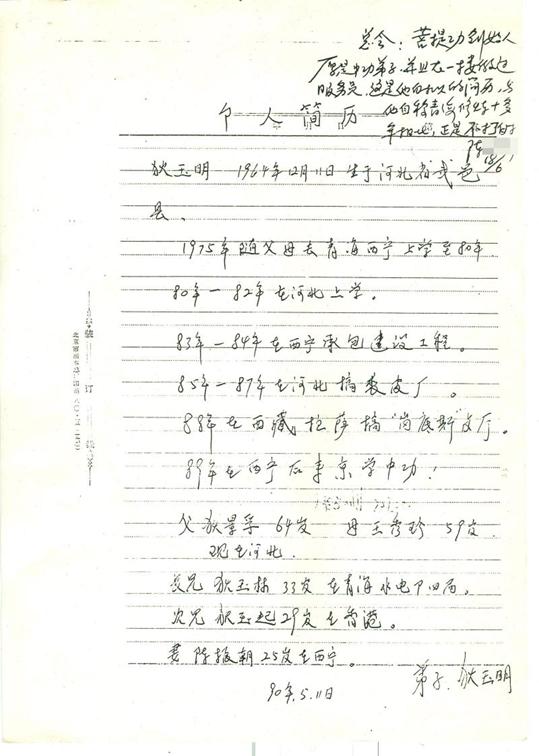 总会：菩提功创始人
原是中功弟子，并且在一接做过
服务员，这是他自扒的简历，与
他自称青海修炼十多
年相
个人简历
狄玉明 1964年12月11日生于河北省武邑
县。
1975年随父母去青海西宁上学至80年
80年—82年在河北上学。
83年—84年在西宁承包建设工程。
85年—87年在河北搞裘皮厂。
88年在西藏拉萨搞"尚底斯"文厅。
89年在西宁后来京学中功！
父狄景 64岁 母王秀珍 59岁
现在河北.
长兄 狄玉栋 33岁 在青海水电局。
次兄 狄玉起 29岁 在香港。
妻 陈振朝 25岁 在西宁。
弟子. 狄玉明
90年.5.11日
装
订
线